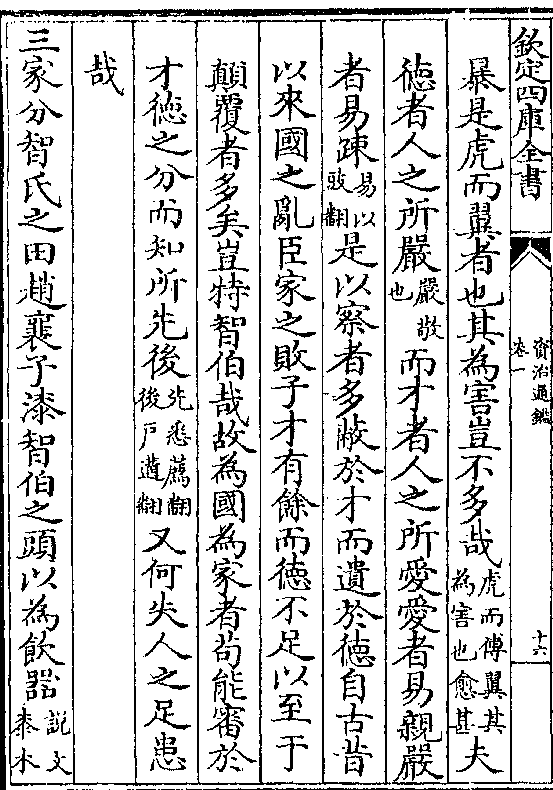 欽定四庫全書
資治通鑑
卷一
十六
暴是虎而翼者也其為害豈不多哉虎而傅翼其為害也愈甚夫
徳者人之所嚴嚴敬也而才者人之所愛愛者易親嚴
者易疎易以豉翻是以察者多蔽於才而遺於徳自古昔
以來國之亂臣家之敗子才有餘而徳不足以至于
顛覆者多矣豈特智伯哉故為國為家者茍能審於
才徳之分而知所先後先悉薦翻後戸遘翻又何失人之足患
哉
三家分智氏之田趙襄子漆智伯之頭以為飲器説文桼木